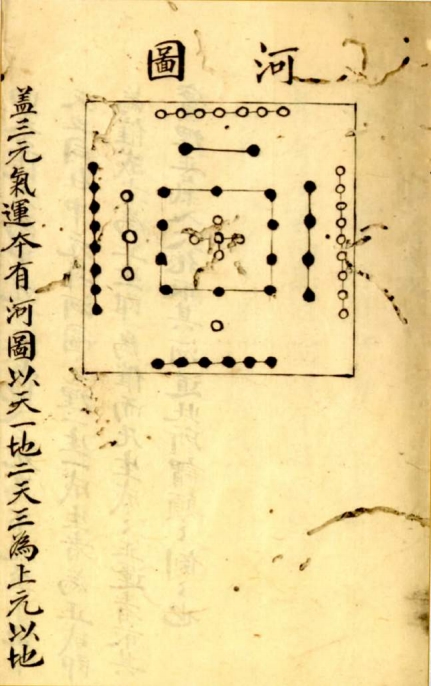 河圖
盖三元氣運本有河圖以天一地二天三為上元以地